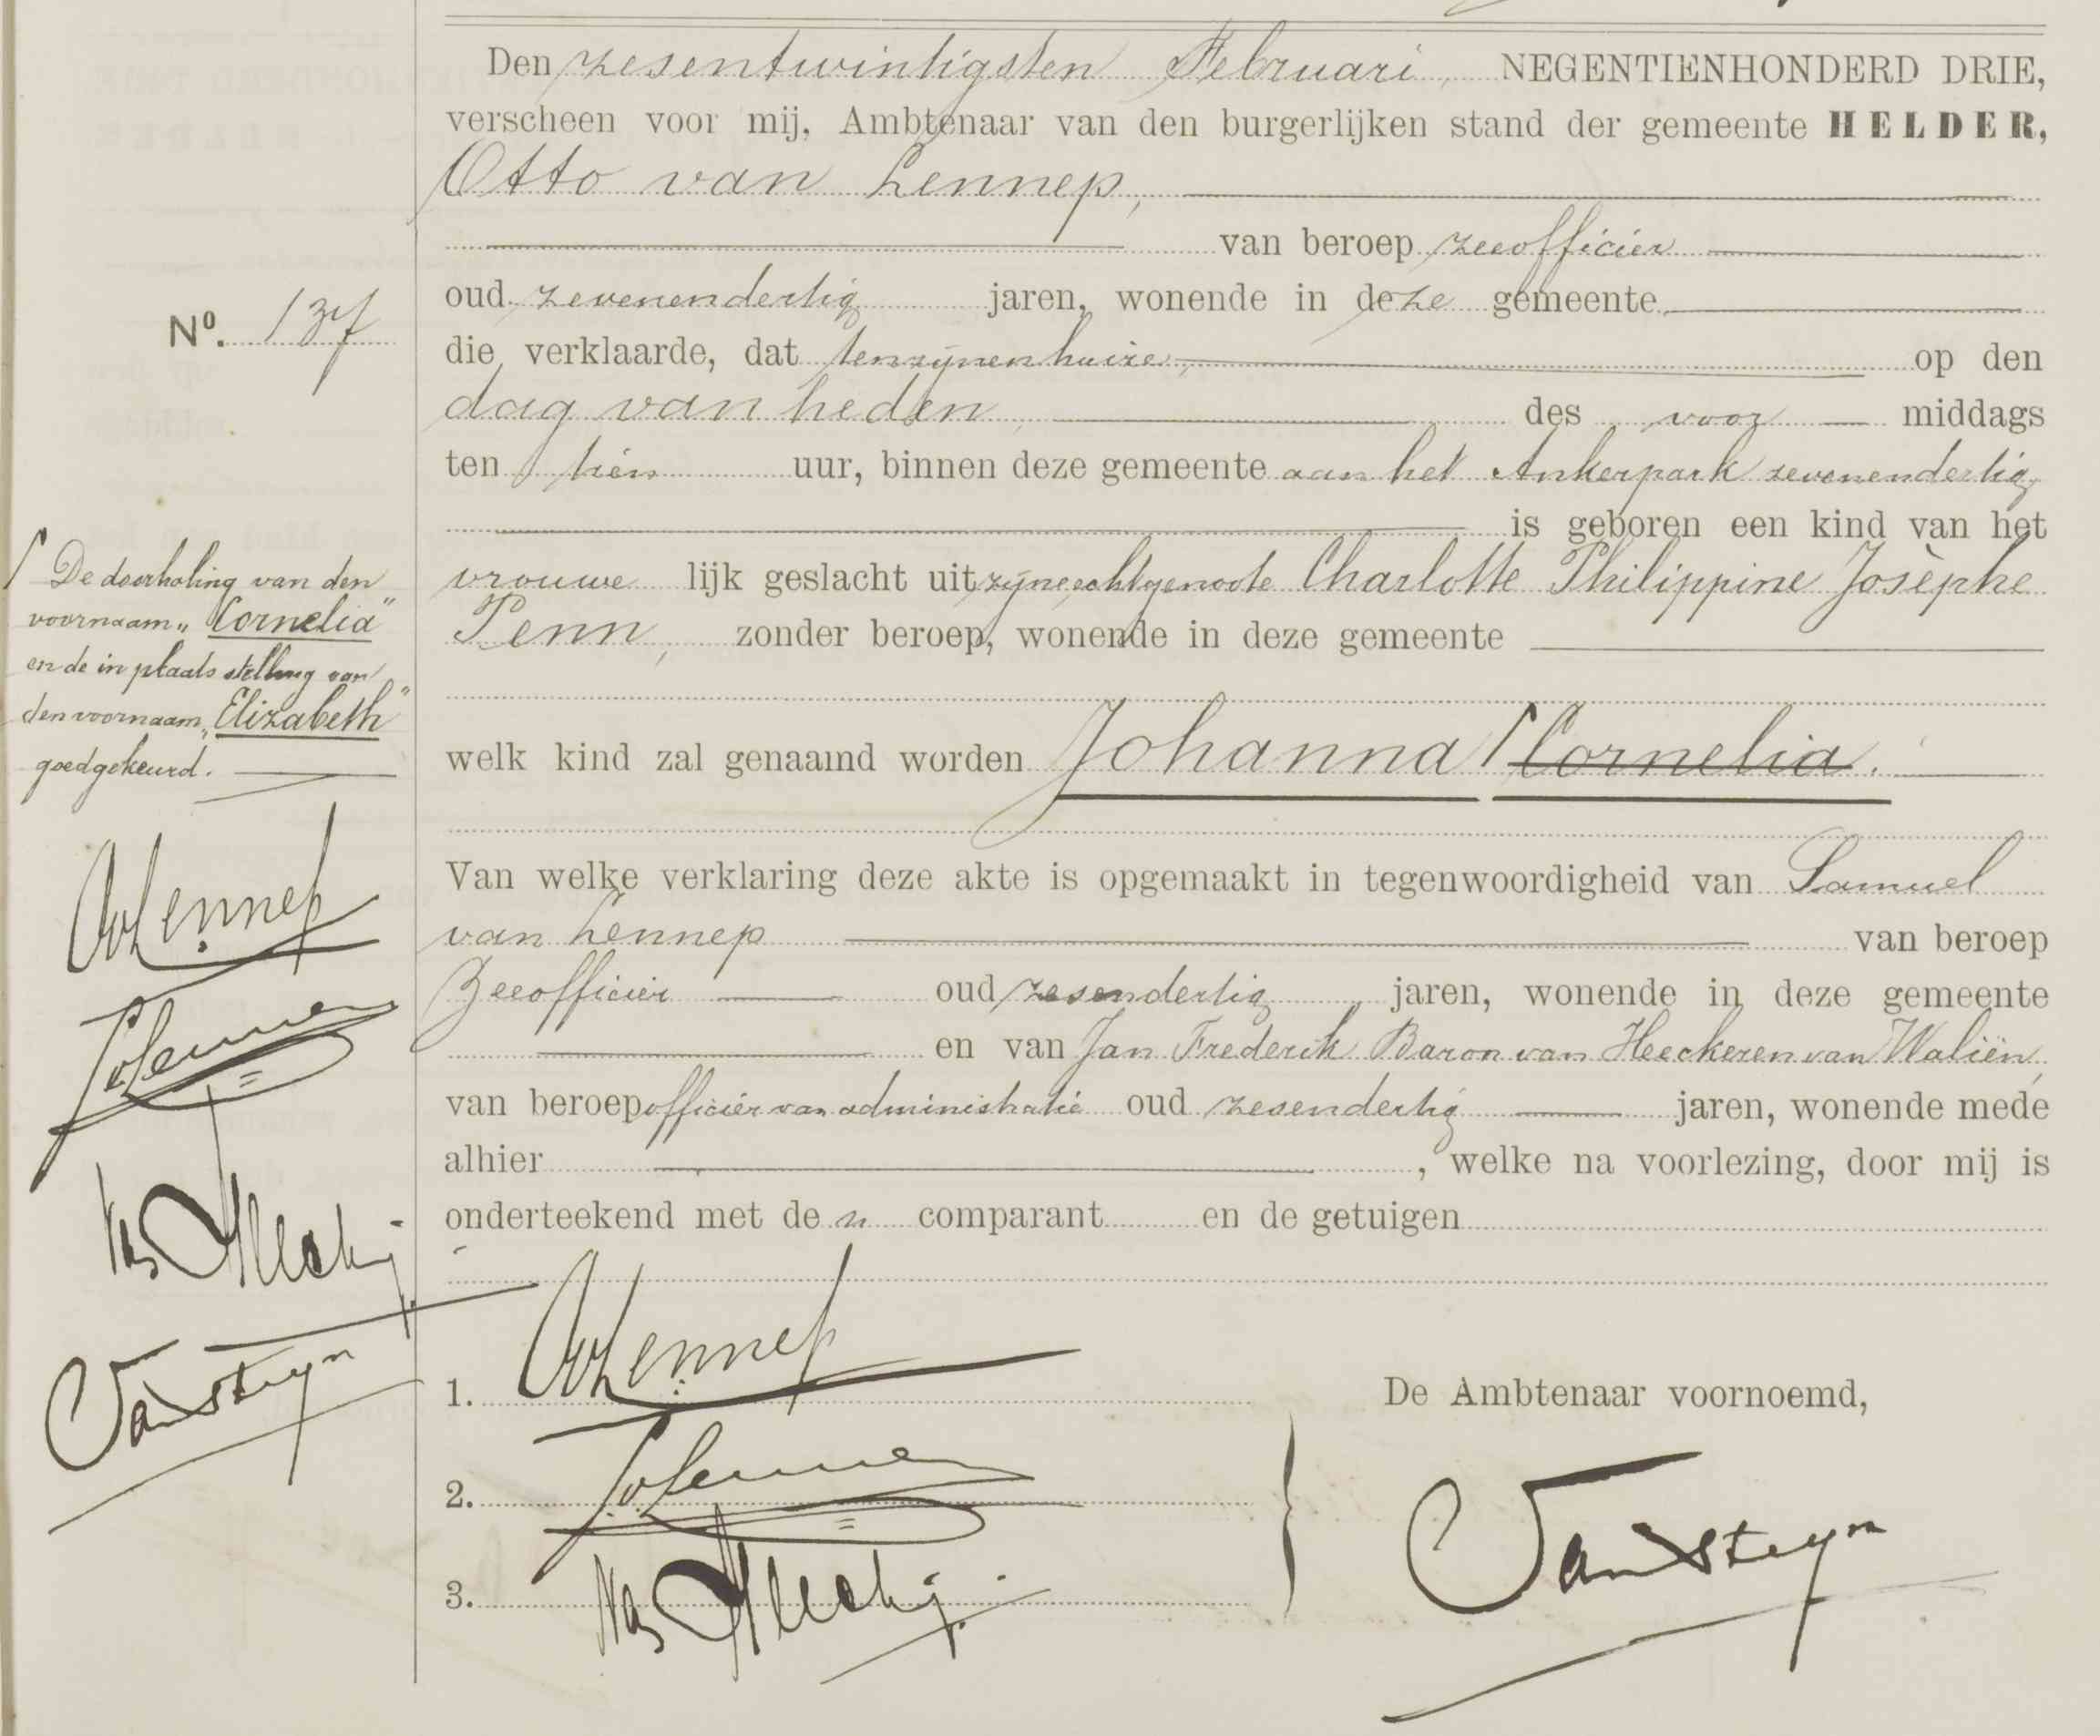 Den zesentwintigsten Februari, NEGENTIENHONDERD DRIE,
verscheen voor mij, Ambtenaar van den burgerlijken stand der gemeente HELDER,
Otto van Lennep,
van beroep zeeofficier
oud zevenendertig jaren, wonende in deze gemeente
die verklaarde, dat tenzijnenhuize, op den
dag van heden, des voor middags
ten tien uur, binnen deze gemeente aan het Ankerpark zevenendertig
is geboren een kind van het
vrouwe lijk geslacht uit zijne echtgenoote Charlotte Philippine Josèphe
Penn, zonder beroep, wonende in deze gemeente
welk kind zal genaamd worden Johanna Cornelia.
Van welke verklaring deze akte is opgemaakt in tegenwoordigheid van Samuel
van Lennep van beroep
Zeeofficier oud zesendertig jaren, wonende in deze gemeente
en van Jan Frederik Baron van Heeckeren van Waliën,
van beroep officier van administratie oud zesendertig jaren, wonende mede
alhier, welke na voorlezing, door mij is
onderteekend met de n comparant en de getuigen
No. 137
De doorhaling van den
voornaam „Cornelia"
en de in plaats stelling van
den voornaam „Elizabeth"
goedgekeurd.
OvLennep
SvLennep
VanSteyn
1. OvLennep
2. SvLennep
3.
De Ambtenaar voornoemd,
VanSteyn